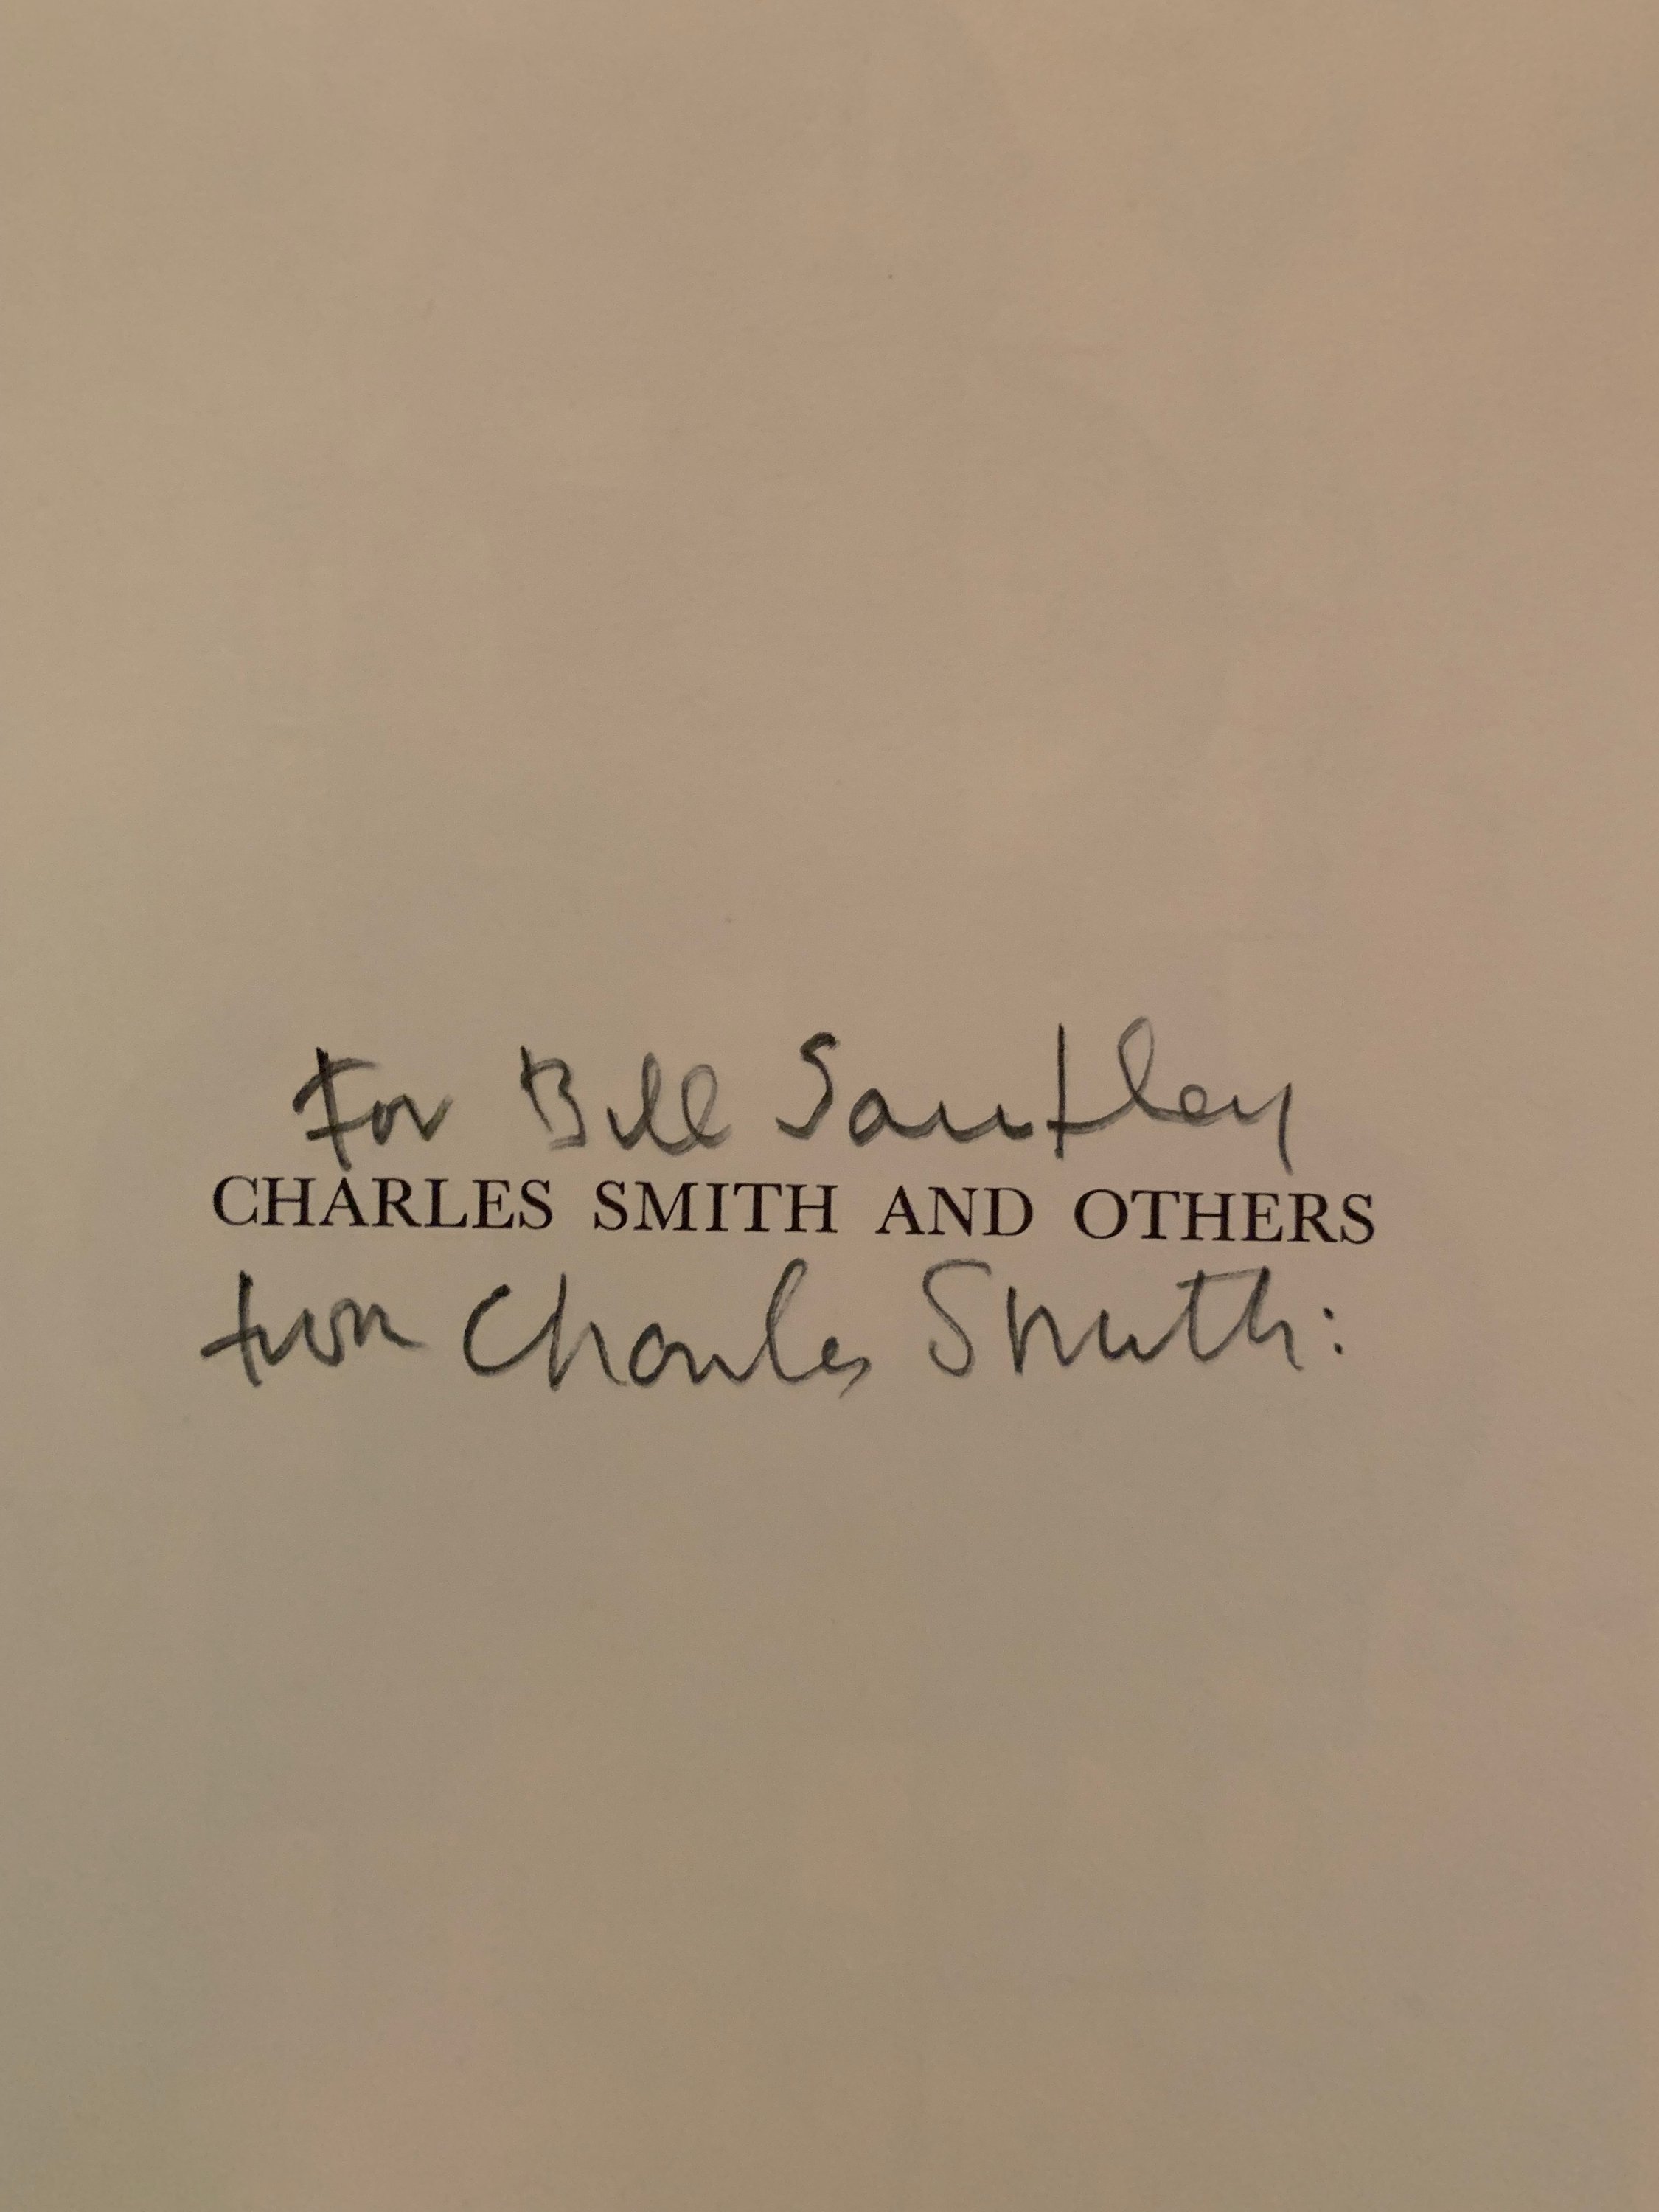 For Bill Santley
CHARLES SMITH AND OTHERS
from Charles Smith: